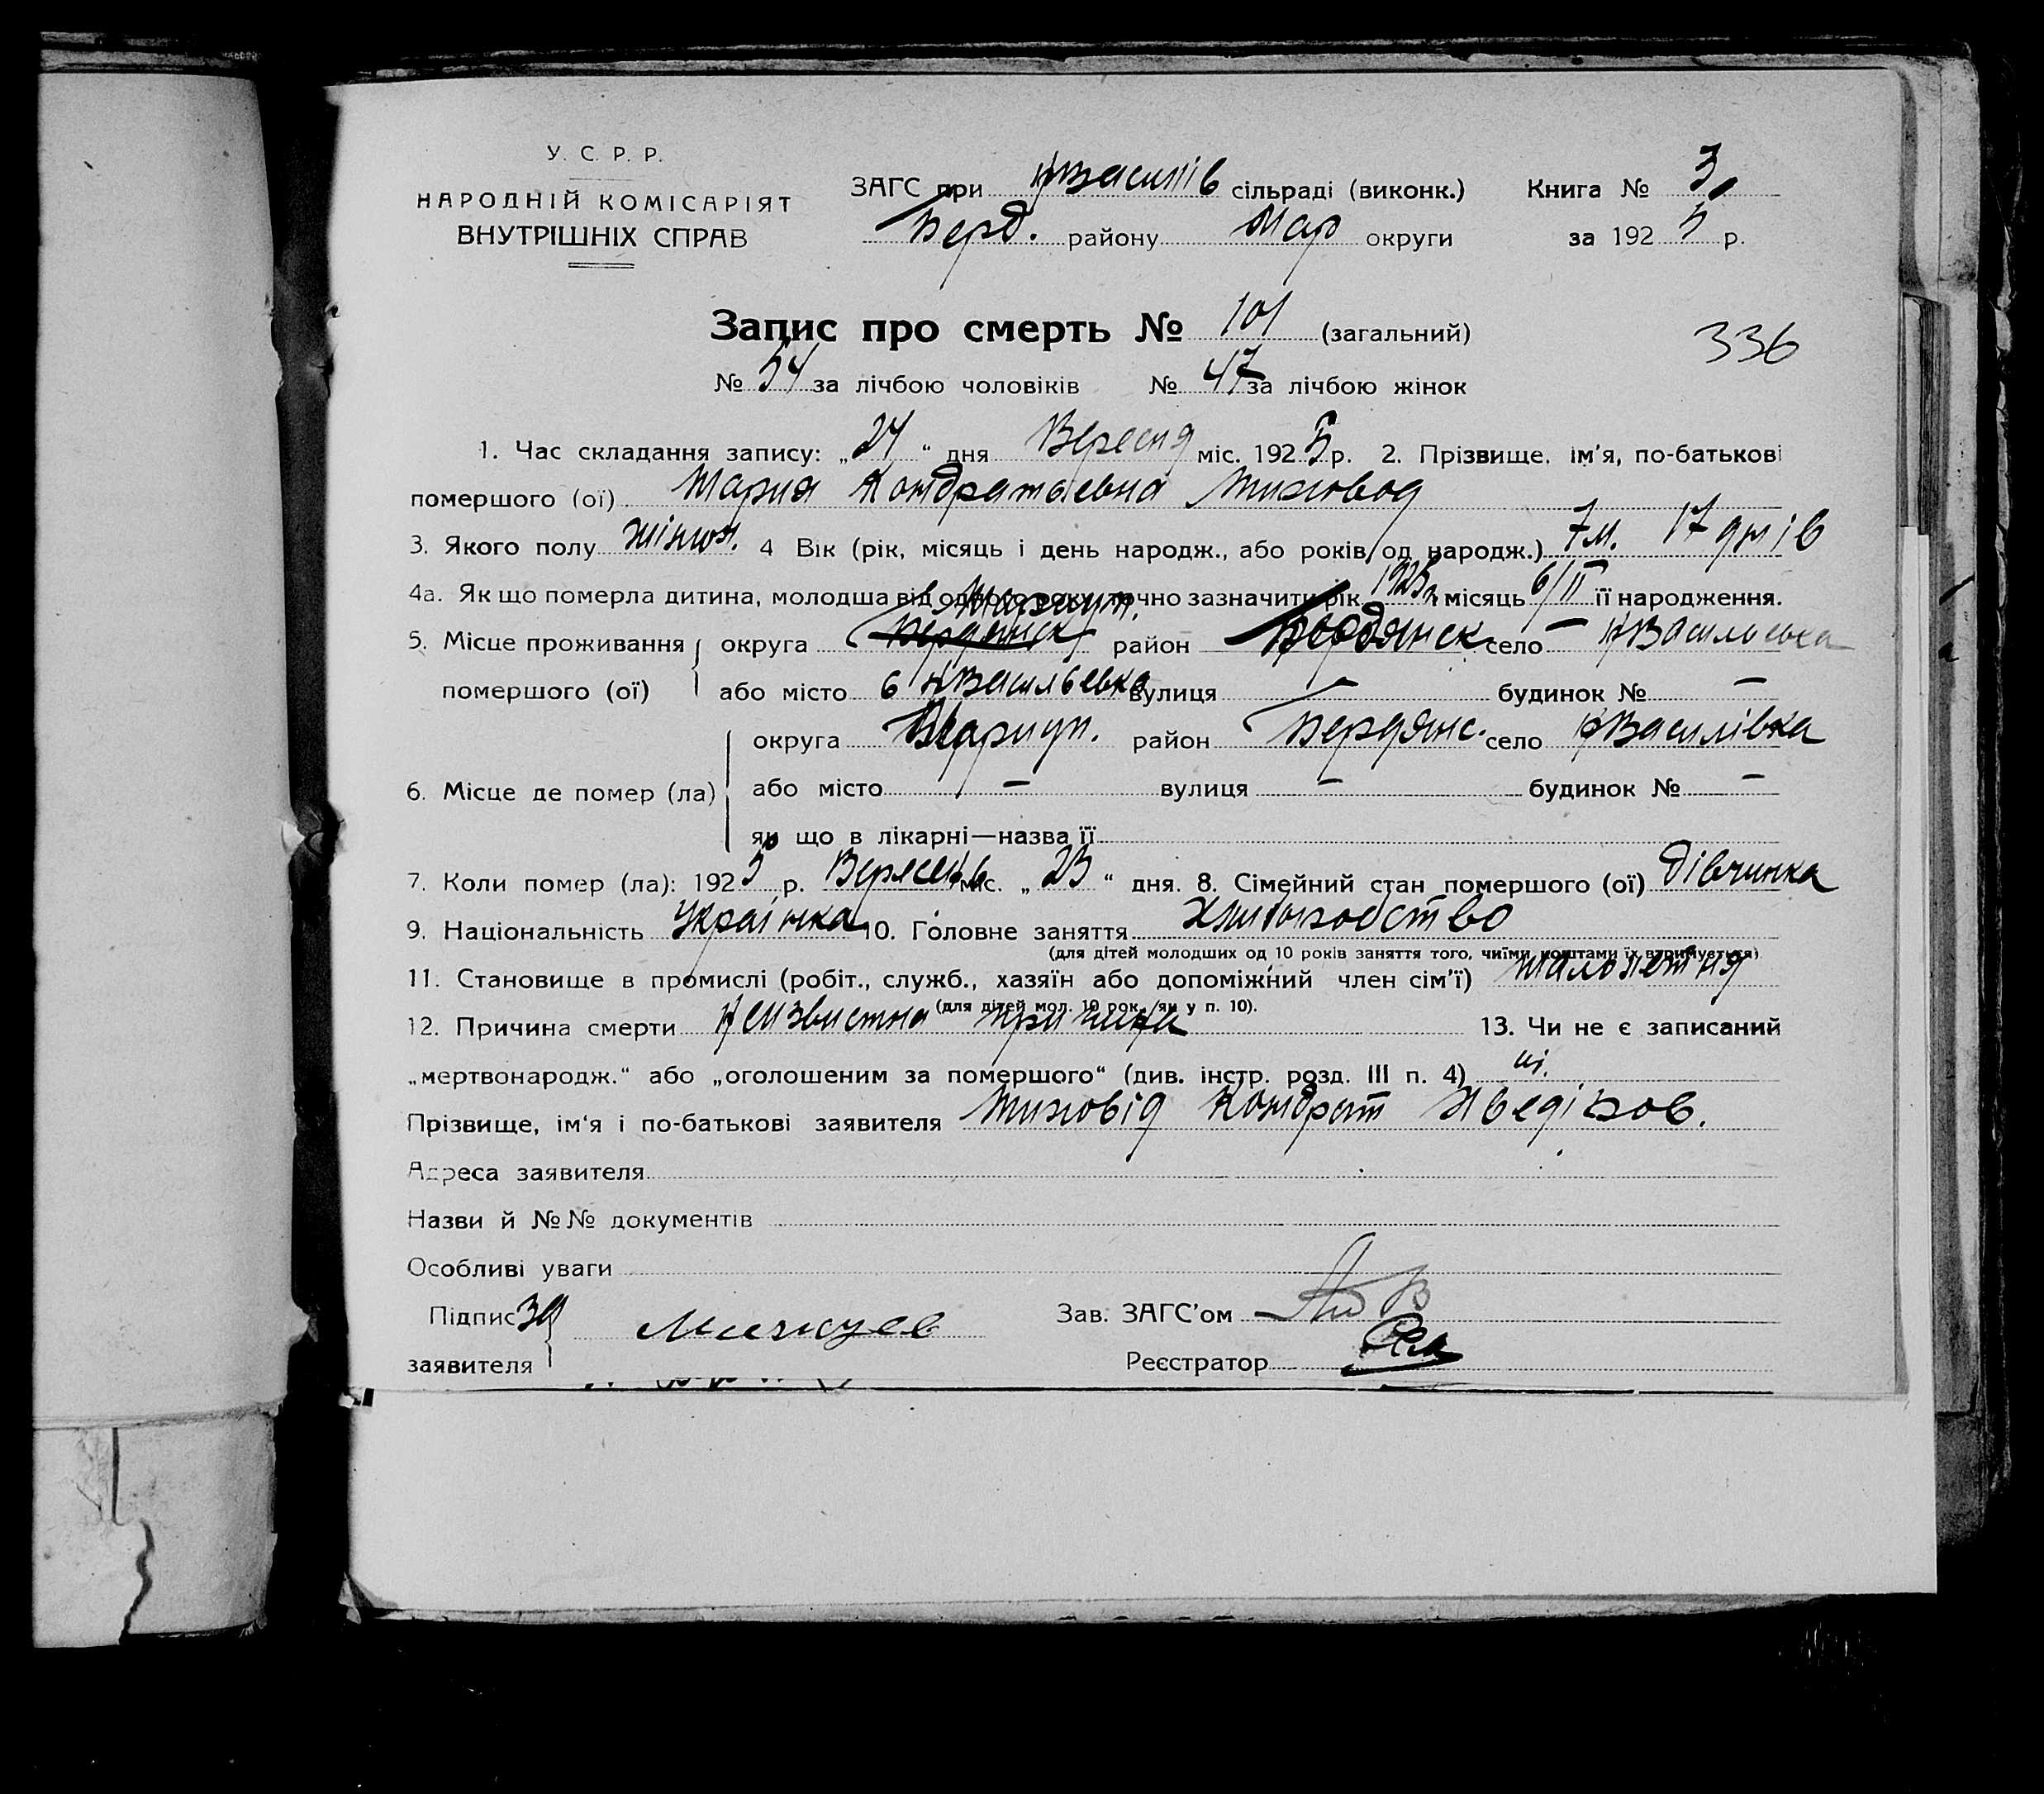 У. С. Р. Р.
НАРОДНІЙ КОМІСАРІЯТ
ВНУТРІШНІХ СПРАВ
ЗАГС при НВасилів сільраді (виконк.) Книга № 3
Берд. району Мар округи за 1925 р.
Запис про смерть № 101 (загальний)
336
№ 54 за лічбою чоловіків № 47 за лічбою жінок
1. Час складання запису: „24“ дня Вересня міс. 1925 р. 2. Прізвище, ім'я, по-батькові
помершого (ої) Мария Кондратьевна
3. Якого полу жіноч. 4 Вік (рік, місяць і день народж., або років од народж.) 7 м. 17 днів
4а. Як що померла дитина, молодша від одного року, точно зазначити рік 1925 місяць 6/II її народження.
Мариуп.
5. Місце проживання округа Бердянск район Бердянск село НВасильевка
помершого (ої) або місто НВасильевка вулиця — будинок № —
округа Мариуп. район Бердянс. село НВасилівка
6. Місце де помер (ла) або місто — вулиця — будинок № —
як що в лікарні—назва її
7. Коли помер (ла): 1925 р. Вересень міс. „23“ дня. 8. Сімейний стан помершого (ої) Дівчинка
9. Національність Українка 10. Головне заняття Хлиборобство
(для дітей молодших од 10 років заняття того, чиїми коштами їх втримується)
11. Становище в промислі (робіт., служб., хазяїн або допоміжний член сім'ї) малолетня
(для дітей мол. 10 рок., як у п. 10).
12. Причина смерти Неизвистна причина 13. Чи не є записаний
„мертвонародж.“ або „оголошеним за помершого“ (див. інстр. розд. III п. 4) ні.
Прізвище, ім'я і по-батькові заявителя Кондрат
Адреса заявителя
Назви й №№ документів
Особливі уваги
Підпис за
заявителя
Зав. ЗАГС'ом
Реєстратор